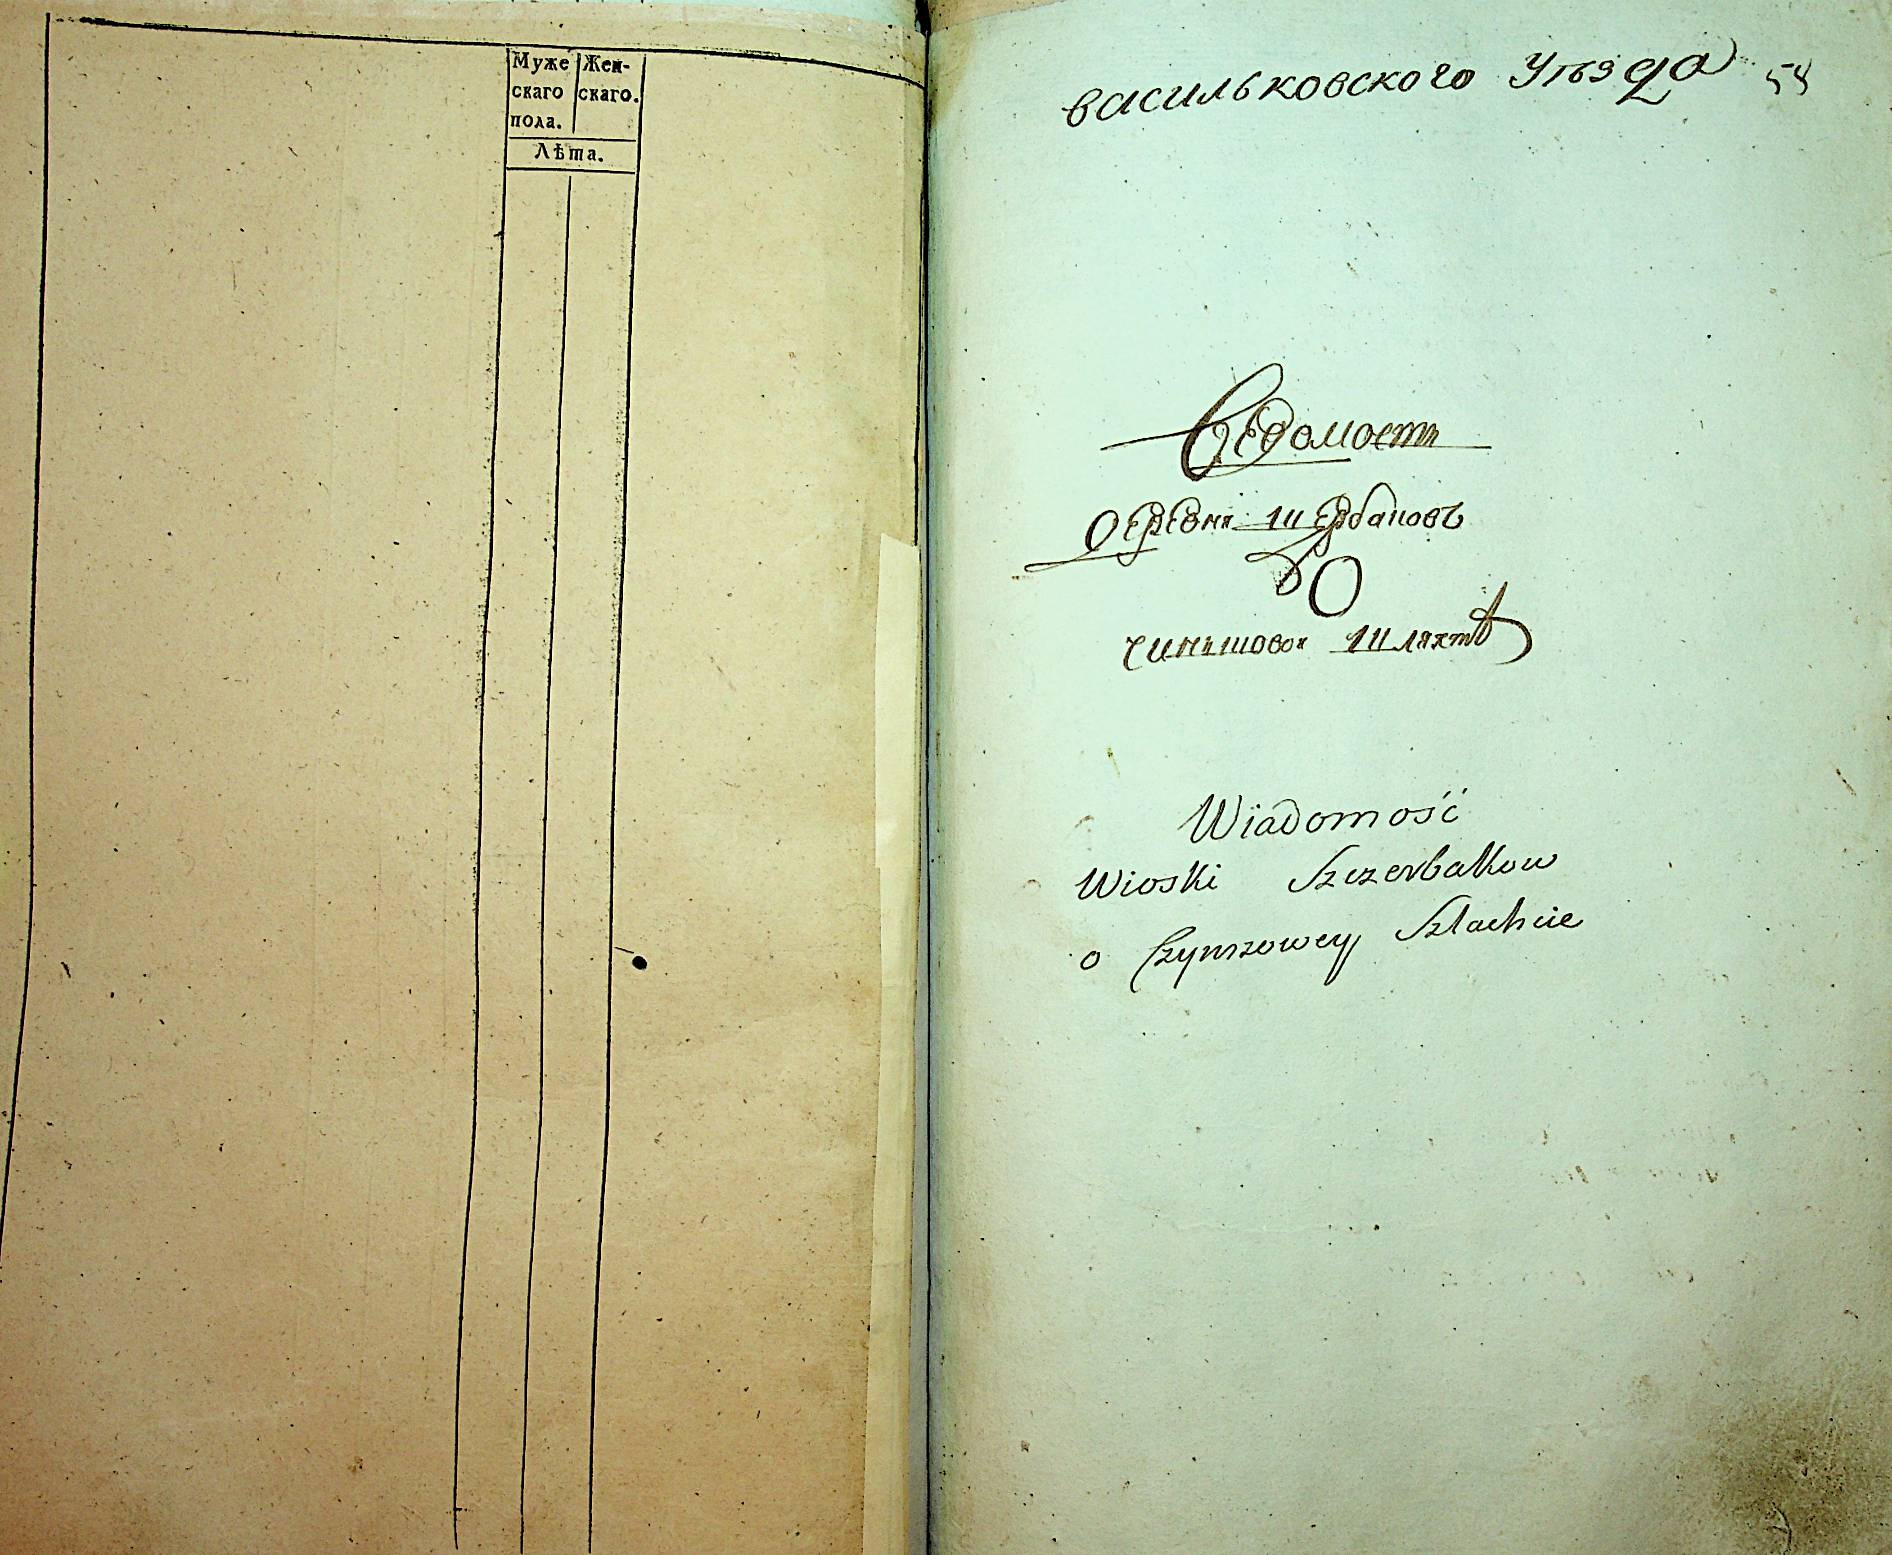 Муже Жен-
скаго скаго.
пола.
Лѣта.
васильковского Уѣзда 54
Ведомость
деревни Щербаковъ
О
чиншовой шляхтѣ
Wiadomość
Wioski Szczerbakow
o Czynszowey Szlachcie